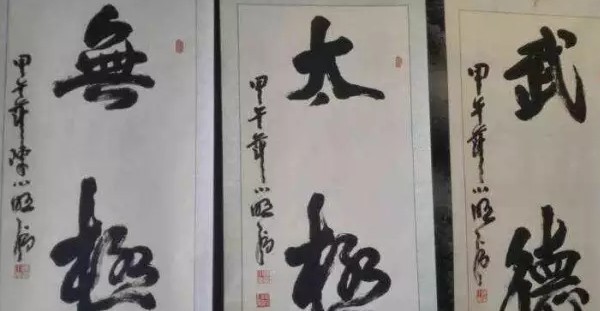 無極
甲午年陳小旺書
太極
甲午年小旺書
武德
甲午年小旺書